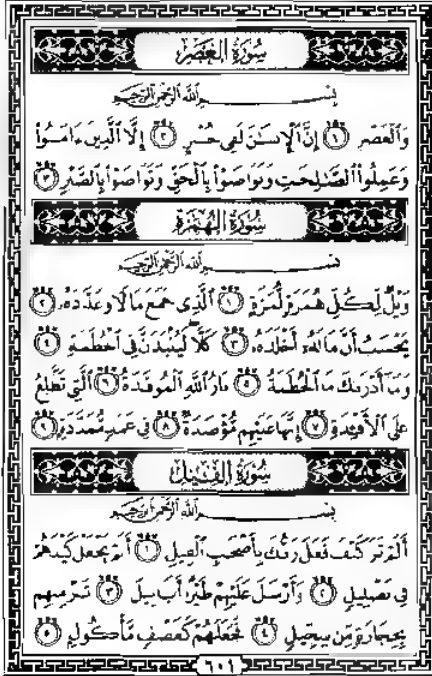 سُورَةُ العَصْرِ
بِسْمِ اللَّهِ الرَّحْمَٰنِ الرَّحِيمِ
وَالْعَصْرِ ١ إِنَّ الْإِنسَانَ لَفِي خُسْرٍ ٢ إِلَّا الَّذِينَ ءَامَنُوا
وَعَمِلُوا الصَّالِحَاتِ وَتَوَاصَوْا بِالْحَقِّ وَتَوَاصَوْا بِالصَّبْرِ ٣
سُورَةُ الهُمَزَةِ
بِسْمِ اللَّهِ الرَّحْمَٰنِ الرَّحِيمِ
وَيْلٌ لِّكُلِّ هُمَزَةٍ لُّمَزَةٍ ١ الَّذِي جَمَعَ مَالًا وَعَدَّدَهُ ٢
يَحْسَبُ أَنَّ مَالَهُ أَخْلَدَهُ ٣ كَلَّا لَيُنبَذَنَّ فِي الْحُطَمَةِ ٤
وَمَا أَدْرَىٰكَ مَا الْحُطَمَةُ ٥ نَارُ اللَّهِ الْمُوقَدَةُ ٦ الَّتِي تَطَّلِعُ
عَلَى الْأَفْئِدَةِ ٧ إِنَّهَا عَلَيْهِم مُّؤْصَدَةٌ ٨ فِي عَمَدٍ مُّمَدَّدَةٍ ٩
سُورَةُ الفِيلِ
بِسْمِ اللَّهِ الرَّحْمَٰنِ الرَّحِيمِ
أَلَمْ تَرَ كَيْفَ فَعَلَ رَبُّكَ بِأَصْحَابِ الْفِيلِ ١ أَلَمْ يَجْعَلْ كَيْدَهُمْ
فِي تَضْلِيلٍ ٢ وَأَرْسَلَ عَلَيْهِمْ طَيْرًا أَبَابِيلَ ٣ تَرْمِيهِم
بِحِجَارَةٍ مِّن سِجِّيلٍ ٤ فَجَعَلَهُمْ كَعَصْفٍ مَّأْكُولٍ ٥
٦٠١